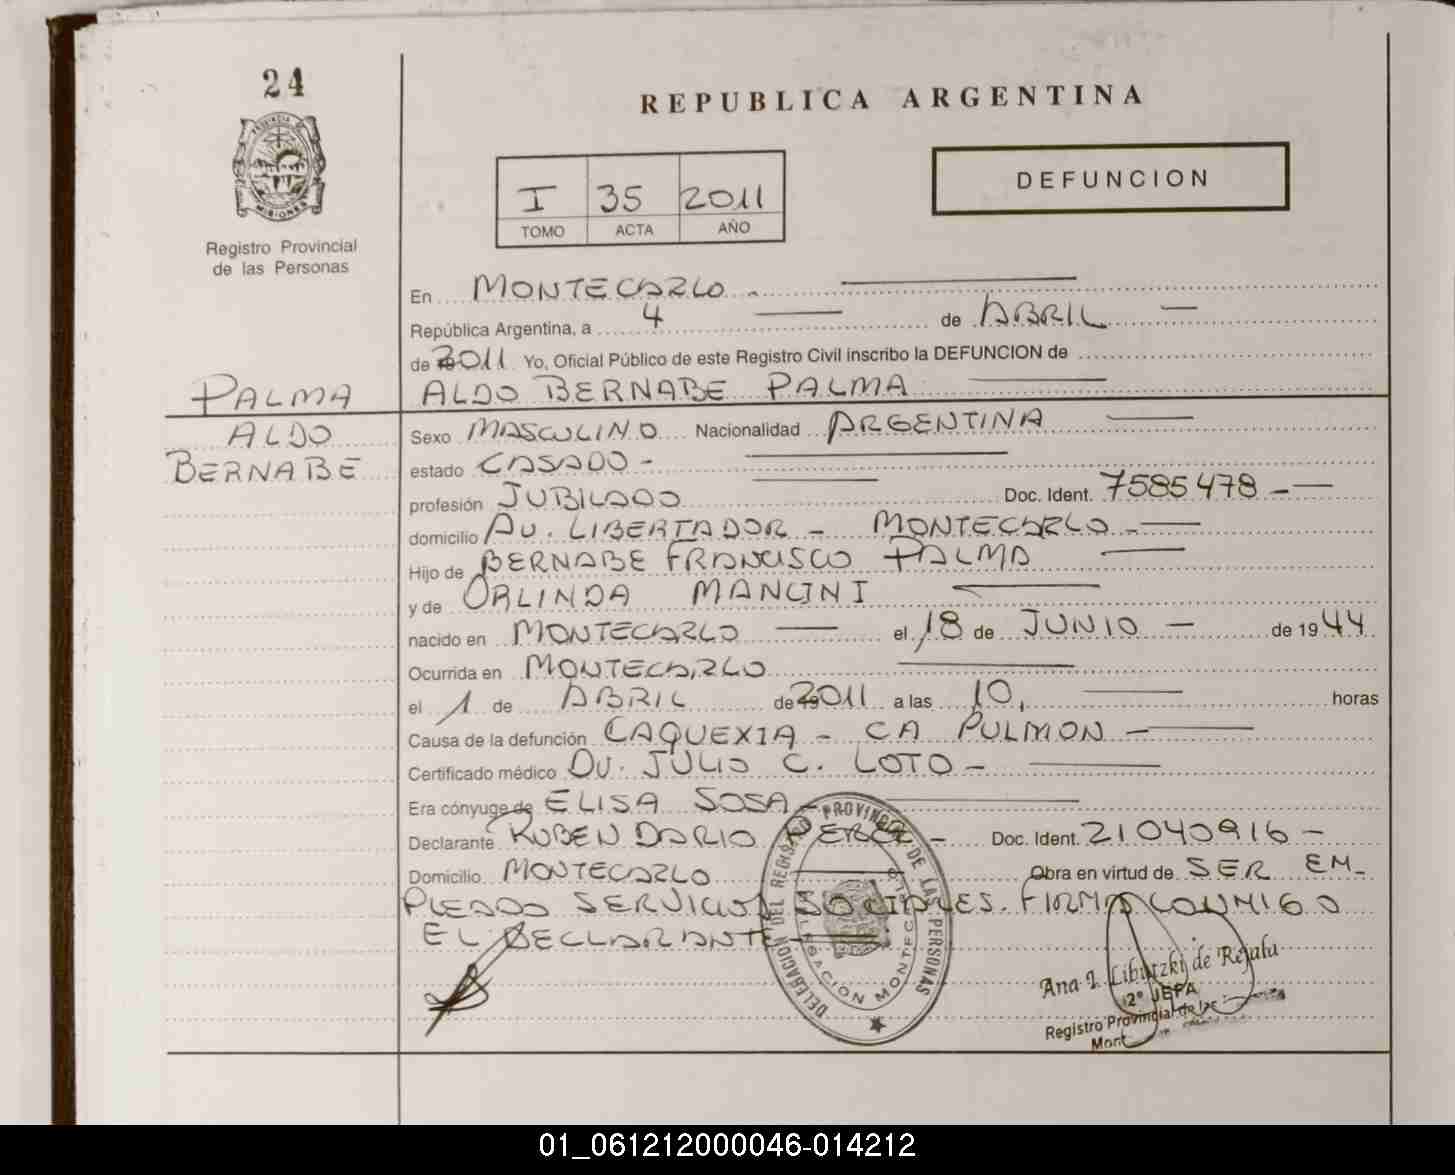 24
PROVINCIA DE
MISIONES
Registro Provincial
de las Personas
REPUBLICA ARGENTINA
DEFUNCION
I 35 2011
TOMO ACTA AÑO
En MONTECARLO -
República Argentina, a 4 de ABRIL
de 2011 Yo, Oficial Público de este Registro Civil inscribo la DEFUNCION de
ALDO BERNABE PALMA
PALMA
ALDO
BERNABE
Sexo MASCULINO Nacionalidad ARGENTINA
estado CASADO -
profesión JUBILADO Doc. Ident. 7585478 -
domicilio AV. LIBERTADOR - MONTECARLO -
Hijo de BERNABE FRANCISCO PALMA
y de ORLINDA MANCINI
nacido en MONTECARLO el 18 de JUNIO - de 1944
Ocurrida en MONTECARLO
el 1 de ABRIL de 2011 a las 10, horas
Causa de la defunción CAQUEXIA - CA PULMON -
Certificado médico JULIO C. LOTO -
Era cónyuge de ELISA SOSA -
Declarante RUBEN DARIO - Doc. Ident. 21040916 -
Domicilio MONTECARLO Obra en virtud de SER EM-
PLEADO SERVICIOS SOCIALES. FIRMA CONMIGO
EL DECLARANTE
DELEGACION DEL REGISTRO PROVINCIAL DE LAS PERSONAS
DELEGACION MONTECARLO
Ana I. de
2° JEFA
Registro Provincial de las
Mont
01_061212000046-014212